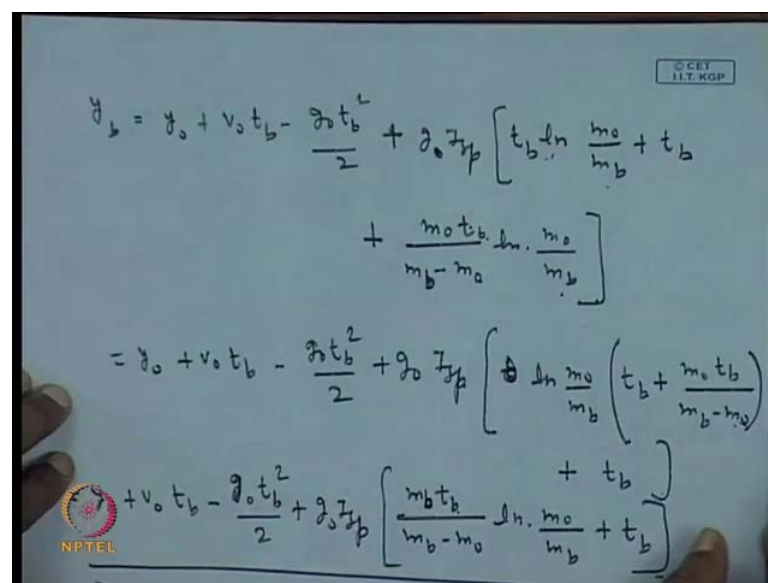 © CET
I.I.T. KGP
y_b = y_0 + v_0 t_b - g_0 t_b^2 / 2 + g_0 I_sp [ t_b ln m_0/m_b + t_b
+ m_0 t_b / (m_b - m_0) ln. m_0/m_b ]
= y_0 + v_0 t_b - g_0 t_b^2 / 2 + g_0 I_sp [ ln m_0/m_b ( t_b + m_0 t_b / (m_b - m_0) )
+ t_b ]
+ v_0 t_b - g_0 t_b^2 / 2 + g_0 I_sp [ m_b t_b / (m_b - m_0) ln. m_0/m_b + t_b ]
NPTEL